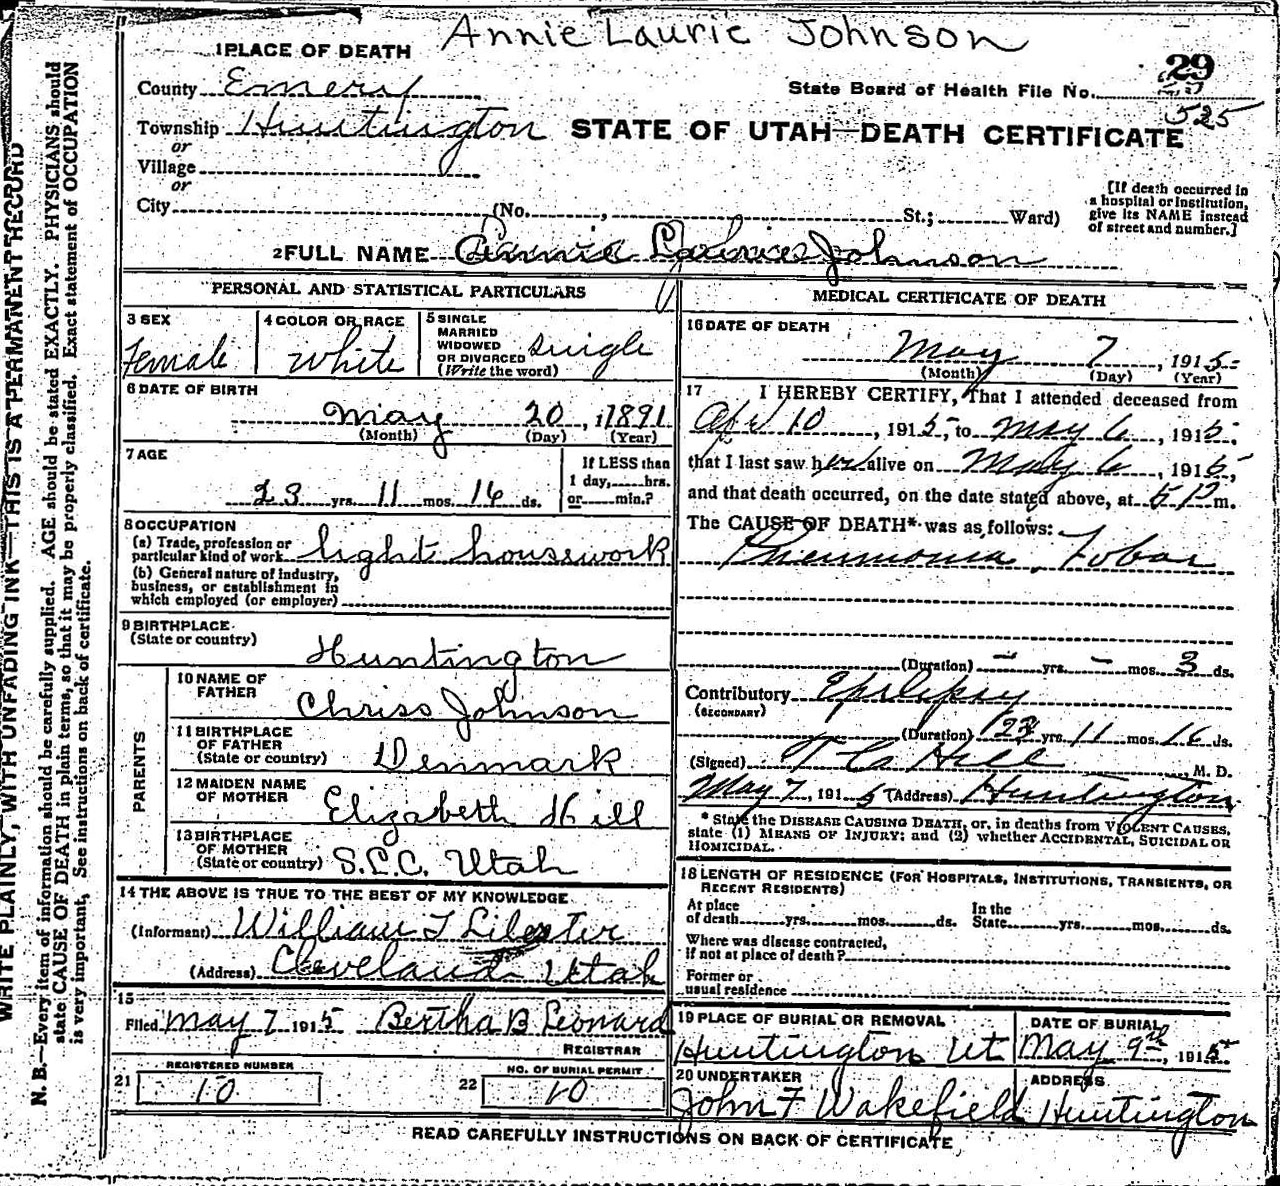 Annie Laurie Johnson
1 PLACE OF DEATH
29
County Emery
State Board of Health File No.
525
Township Huntington
STATE OF UTAH—DEATH CERTIFICATE
or
Village
or
City (No. , St.; Ward)
[If death occurred in
a hospital or institution,
give its NAME instead
of street and number.]
2 FULL NAME Annie Johnson
PERSONAL AND STATISTICAL PARTICULARS
3 SEX
Female
4 COLOR OR RACE
White
5 SINGLE
MARRIED
WIDOWED
OR DIVORCED
(Write the word)
Single
6 DATE OF BIRTH
May 20, 1891
(Month) (Day) (Year)
7 AGE
23 yrs. 11 mos. 16 ds.
If LESS than
1 day, hrs.
or min.?
8 OCCUPATION
(a) Trade, profession or
particular kind of work light housework
(b) General nature of industry,
business, or establishment in
which employed (or employer)
9 BIRTHPLACE
(State or country)
Huntington
PARENTS
10 NAME OF
FATHER
Chriss Johnson
11 BIRTHPLACE
OF FATHER
(State or country)
Denmark
12 MAIDEN NAME
OF MOTHER
Elizabeth Hill
13 BIRTHPLACE
OF MOTHER
(State or country)
S.L.C. Utah
14 THE ABOVE IS TRUE TO THE BEST OF MY KNOWLEDGE
(Informant) William T
(Address) Cleveland Utah
15
Filed May 7 1915 Bertha B Leonard
REGISTRAR
REGISTERED NUMBER
21 10
NO. OF BURIAL PERMIT
22 10
MEDICAL CERTIFICATE OF DEATH
16 DATE OF DEATH
May 7, 1915
(Month) (Day) (Year)
17 I HEREBY CERTIFY, That I attended deceased from
Apr 10, 1915, to May 6, 1915,
that I last saw her alive on May 6, 1915,
and that death occurred, on the date stated above, at 5 P m.
The CAUSE OF DEATH* was as follows:
Pneumonia, Lobar
(Duration) – yrs. – mos. 3 ds.
Contributory Epilepsy
(SECONDARY)
(Duration) 23 yrs. 11 mos. 16 ds.
(Signed) T C Hill, M. D.
May 7, 1915 (Address) Huntington
* State the DISEASE CAUSING DEATH, or, in deaths from VIOLENT CAUSES,
state (1) MEANS OF INJURY; and (2) whether ACCIDENTAL, SUICIDAL OR
HOMICIDAL.
18 LENGTH OF RESIDENCE (FOR HOSPITALS, INSTITUTIONS, TRANSIENTS, OR
RECENT RESIDENTS)
At place
of death yrs. mos. ds.
In the
State yrs. mos. ds.
Where was disease contracted,
if not at place of death?
Former or
usual residence
19 PLACE OF BURIAL OR REMOVAL
Huntington Ut
DATE OF BURIAL
May 9th, 1915
20 UNDERTAKER
John F Wakefield
ADDRESS
Huntington
READ CAREFULLY INSTRUCTIONS ON BACK OF CERTIFICATE
WRITE PLAINLY, WITH UNFADING INK—THIS IS A PERMANENT RECORD
N. B.—Every item of information should be carefully supplied. AGE should be stated EXACTLY. PHYSICIANS should
state CAUSE OF DEATH in plain terms, so that it may be properly classified. Exact statement of OCCUPATION
is very important, See instructions on back of certificate.